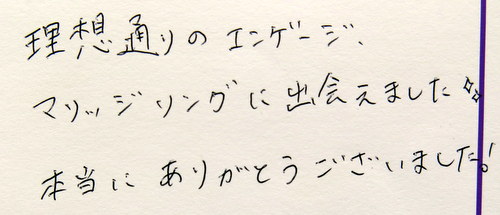 理想通りのエンゲージ、
マリッジリングに出会えました✨
本当にありがとうございました!